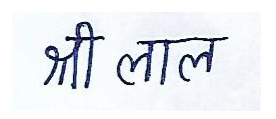 श्री लाल